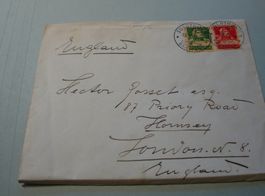 England
Hector Posset esq.
87 Priory Road
Hornsey
London. N. 8.
England